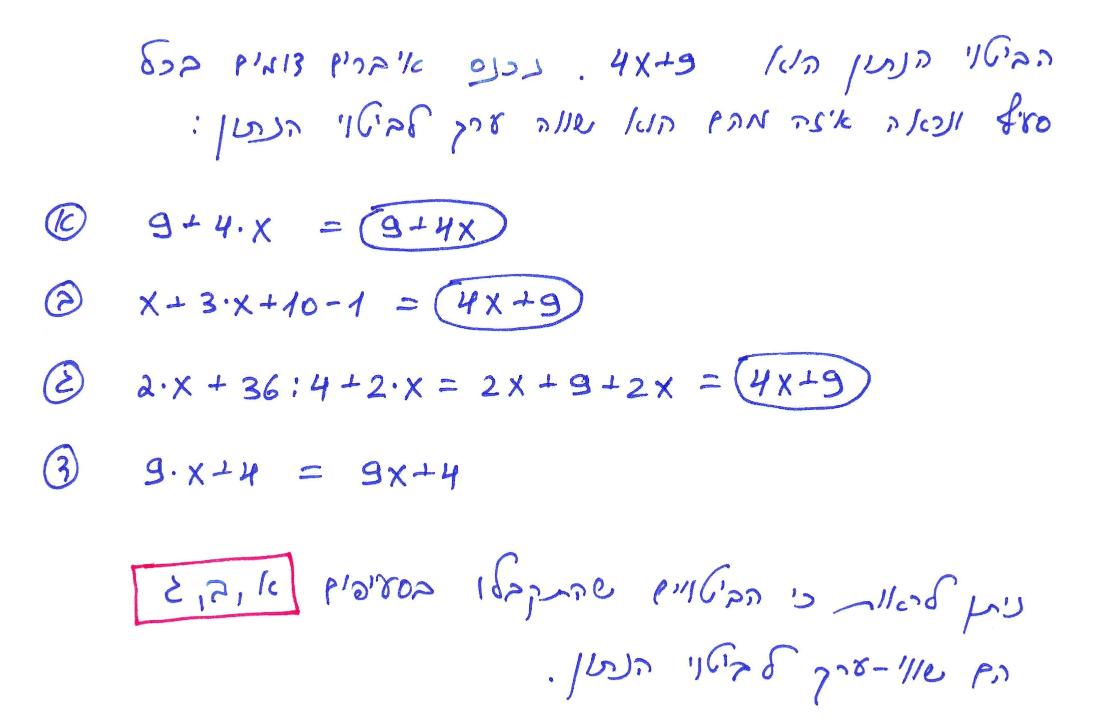 הביטוי הנתון הוא 4x+9. נכנס איברים דומים בכל
סעיף ונראה איזה מהם הוא שווה ערך לביטוי הנתון:
א 9+4·x = 9+4x
ב x+3·x+10-1 = 4x+9
ג 2·x+36:4+2·x = 2x+9+2x = 4x+9
ד 9·x+4 = 9x+4
ניתן לראות כי הביטויים שהתקבלו בסעיפים א, ב, ג
הם שווי-ערך לביטוי הנתון.